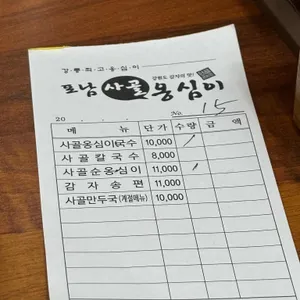 강릉최고옹심이
강원도 감자의 맛!
포남 사골 옹심이
20 . . . No. 15
메 뉴 단가 수량 금 액
사골옹심이국수 10,000 /
사골칼국수 8,000
사골순옹심이 11,000 /
감자송편 11,000
사골만두국(계절메뉴) 10,000